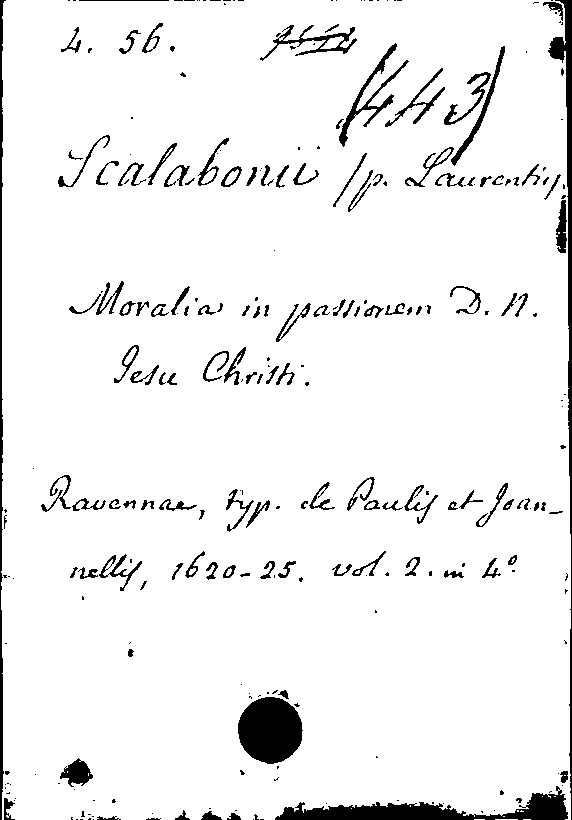 4. 56.
(443)
Scalabonii /p. Laurentij
Moralia in passionem D. N.
Jesu Christi.
Ravennae, typ. de Paulis et Joan-
nellis, 1620-25. vol. 2. in 4º